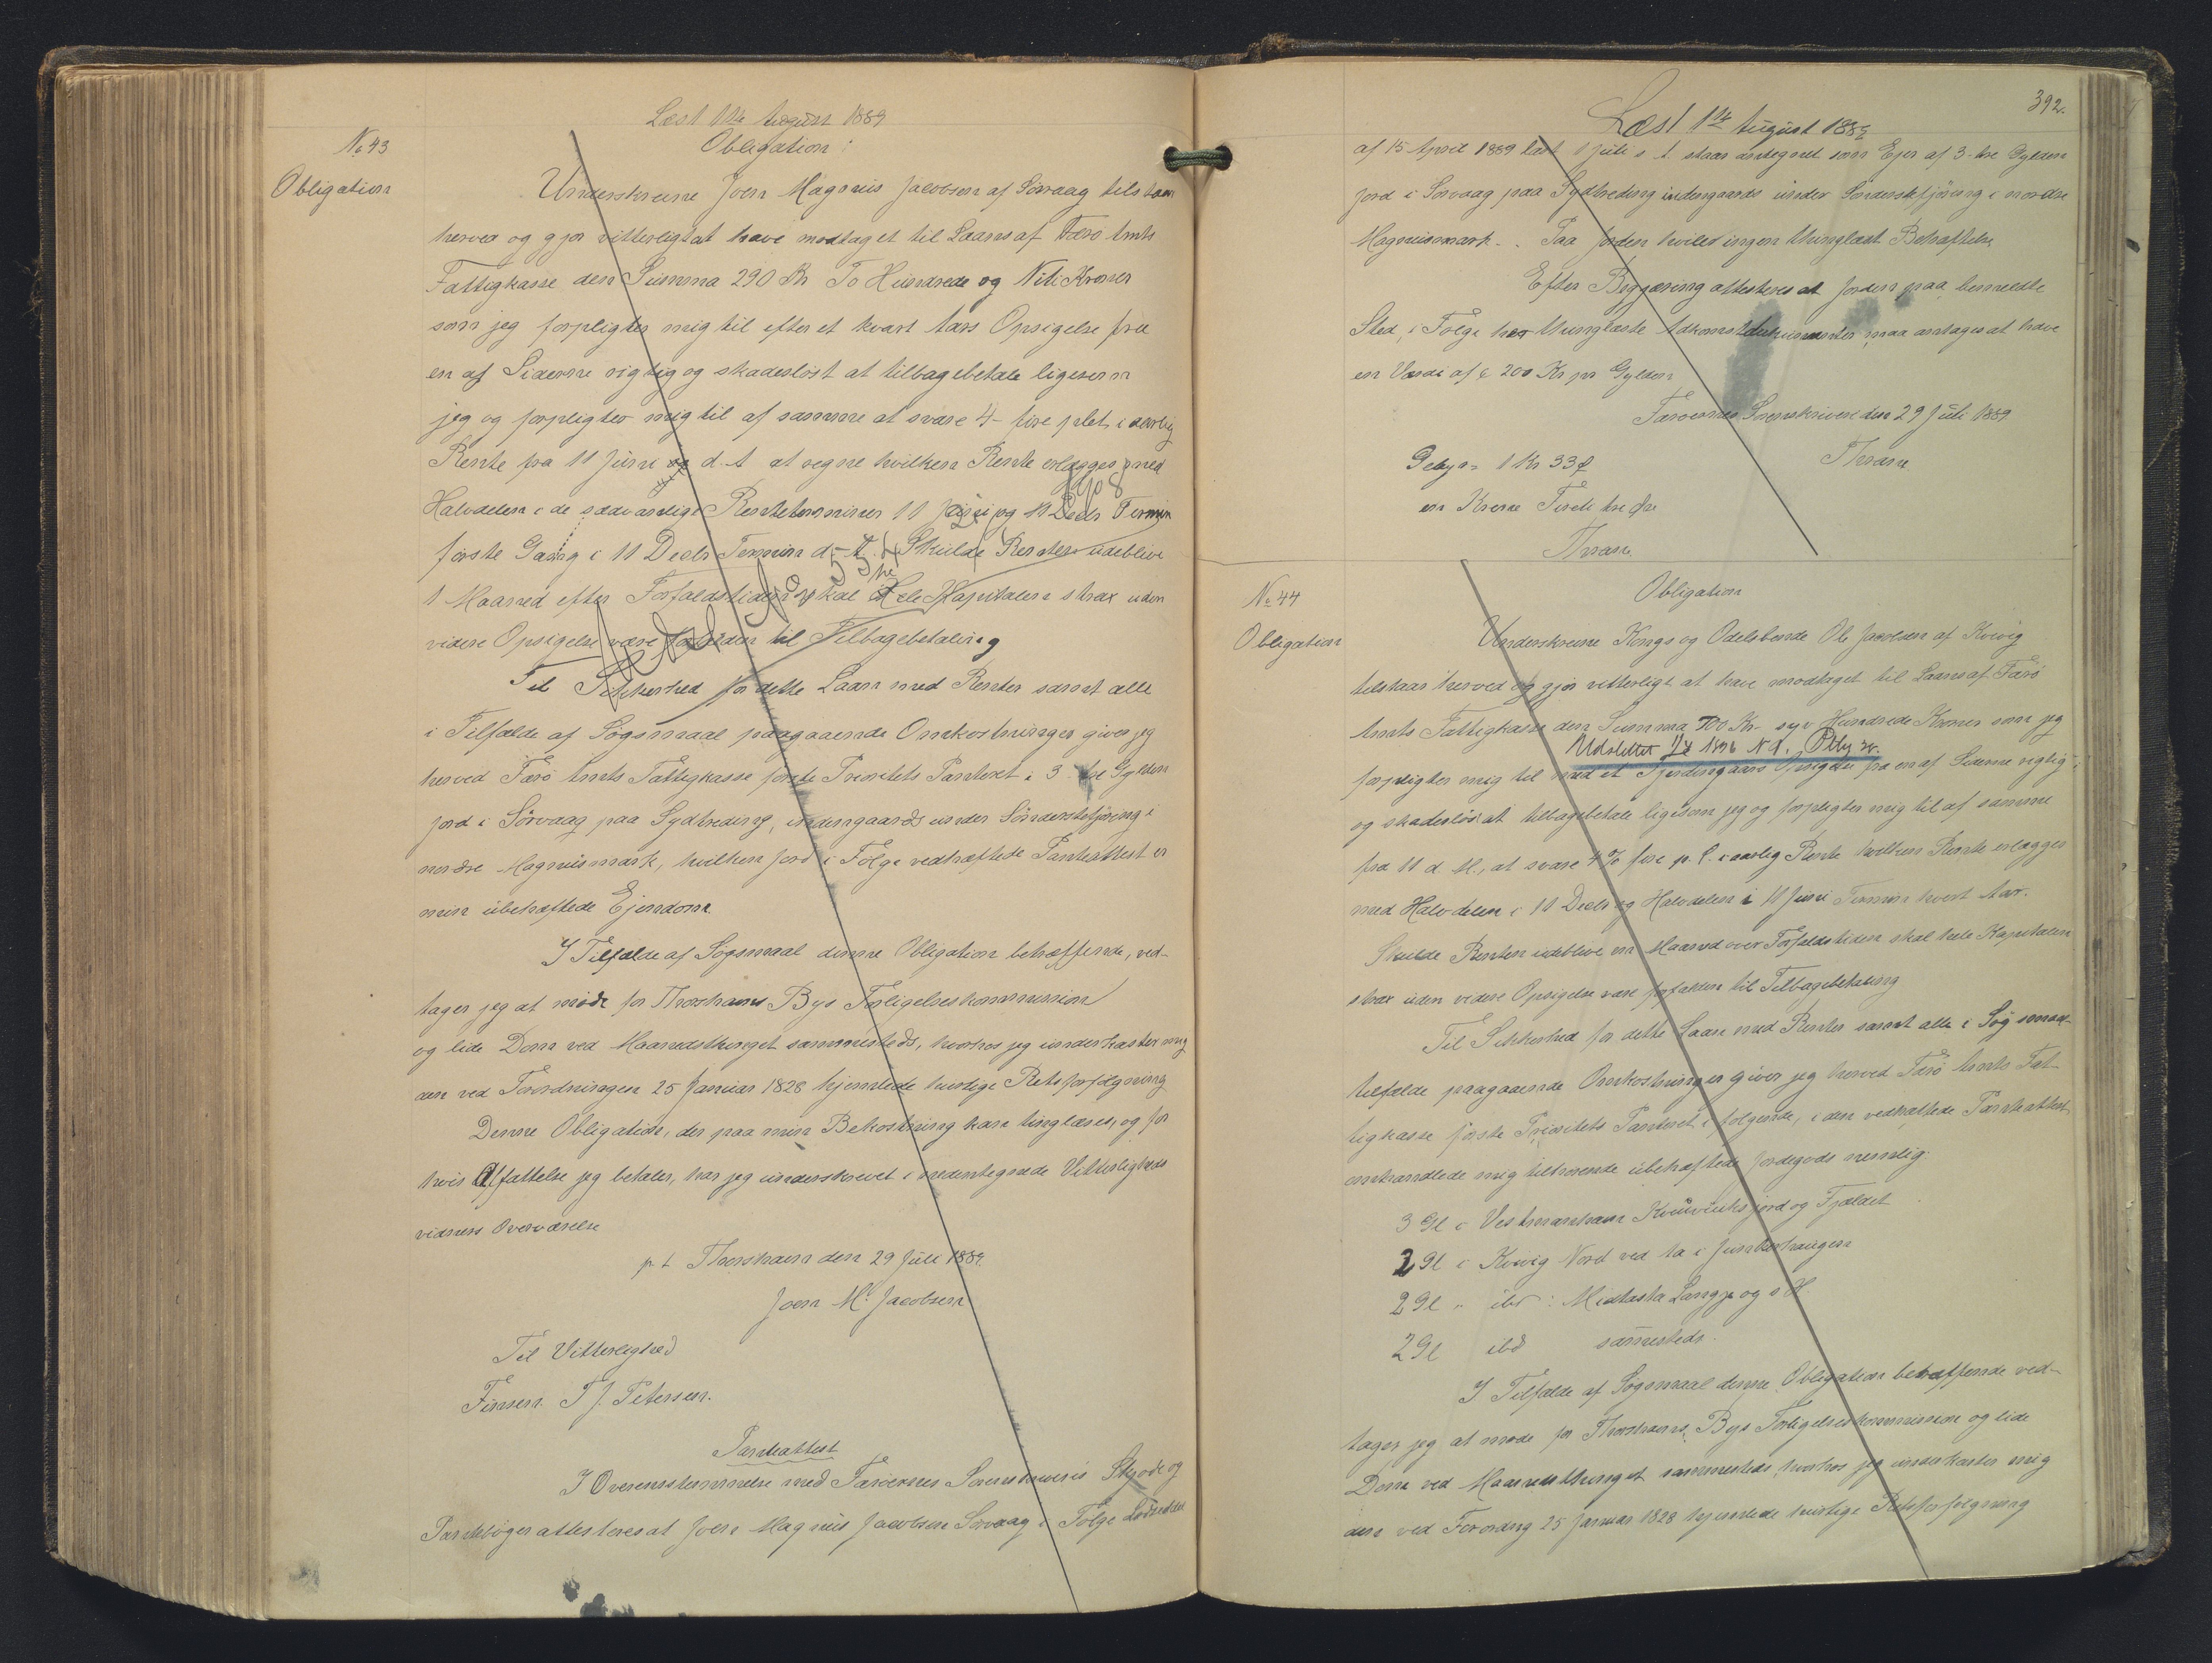 Læst 1ste August 1889
No 43
Obligation
Obligation:
Underskrevne Joen Magnus Jacobsen af Sörvaag tilstaar
herved og gjör vitterligt at have modtaget til Laans af Færö Amts
Fattigkasse den Summa 290 Kr To Hundrede og Niti Kroner
som jeg forpligter mig til efter et kvart Aars Opsigelse fra
en af Siderne rigtig og skadeslöst at tilbagebetale ligesom
jeg og forpligter mig til af samme at svare 4 - fire pCt. i aarlig
Rente fra 11 Juni d. A at regne hvilken Rente erlægges med
Halvdelen i de sædvanlige Renteterminer 11 Juni og 11 Decbr Termin
förste Gang i 11 Decbr Termin d. A. Skulde Renten udeblive
1 Maaned efter Forfaldstiden skal hele Kapitalen strax uden
videre Opsigelse være forfalden til Tilbagebetaling
Til Sikkerhed for dette Laan med Renter samt alle
i Tilfælde af Sögsmaal paagaaende Omkostninger giver jeg
herved Færö Amts Fattigkasse förste Prioritets Panteret i 3 tre Gylden
Jord i Sörvaag paa Sydtreding, indengaards under Sönderstefjöring i
nordre Magnusmark, hvilken Jord i Fölge vedhæftede Panteattest er
min ubehæftede Ejendom
I Tilfælde af Sögsmaal denne Obligation betræffende, ved-
tager jeg at möde for Thorshavns Bys Forligelseskommission
og lide Dom ved Maanedsthinget sammesteds, hvorhos jeg underkaster mig
den ved Forordningen 25 Januar 1828 hjemlede hurtige Retsforfölgning
Denne Obligation, der paa min Bekostning kan tinglæses, og for
hvis Affattelse jeg betaler, har jeg underskrevet i nedentegnede Vitterligheds
vidners Overværelse
p t Thorshavn den 29 Juli 1889.
Joen M. Jacobsen
Til Vitterlighed
Finsen. T J. Petersen.
Panteattest
I Overensstemmelse med Færöernes Sorenskriveris Skjöde og
Pantebøger attesteres at Joen Magnus Jacobsen Sörvaag i Fölge
392.
Læst 1ste August 1889
af 15 April 1889 læst 1 Juli s A staar antegnet som Ejer af 3 - tre Gylden
Jord i Sörvaag paa Sydtreding indengaards under Sönderstefjöring i nordre
Magnusmark. Paa Jorden hviler ingen thinglæst Behæftelse
Efter Begjæring attesteres at Jorden paa bemeldte
Sted, i Fölge her thinglæste Adkomstdokumenter maa antages at have
en Værdi af c 200 Kr pr Gylden
Færöernes Sorenskriveri den 29 Juli 1889
Gebyr = 1 Kr 33 Ø
en Krone Tireti tre Øre
No 44
Obligation
Obligation
Underskrevne Kongs og Odelsbonde Ole Jacobsen af Kvivig
tilstaar herved og gjör vitterligt at have modtaget til Laans af Færö
Amts Fattigkasse den Summa 700 Kr. syv Hundrede Kroner som jeg
Udslettet 1896
forpligter mig til med et Fjerdingaars Opsigelse fra en af Siderne rigtig
og skadeslöst at tilbagebetale ligesom jeg og forpligter mig til af samme
fra 11 d. M., at svare 4 % fire p. C. i aarlig Rente hvilken Rente erlægges
med Halvdelen i 11 Decbr og Halvdelen i 11 Juni Termin hvert Aar.
Skulde Renten udeblive en Maaned over Forfaldstiden skal hele Kapitalen
strax uden videre Opsigelse være forfalden til Tilbagebetaling
Til Sikkerhed for dette Laan med Renter samt alle i Sögsmaal
tilfælde paagaaende Omkostninger giver jeg herved Færö Amts Fat-
tigkasse förste Prioritets Panteret i fölgende, i den vedhæftede Panteattest
omhandlede mig tilhörende ubehæftede Jordegods nemlig:
3 Gl i Vestmanhavn og Fjældet
2 Gl i Kvivig Nord ved Aa i
2 Gl " ibd:
2 Gl ibd sammesteds.
I Tilfælde af Sögsmaal denne Obligation betræffende ved-
tager jeg at möde for Thorshavns Bys Forligelseskommission og lide
Dom ved Maanedsthinget sammesteds hvorhos jeg underkaster mig
den ved Forordng 25 Januar 1828 hjemlede hurtige Retsforfölgning